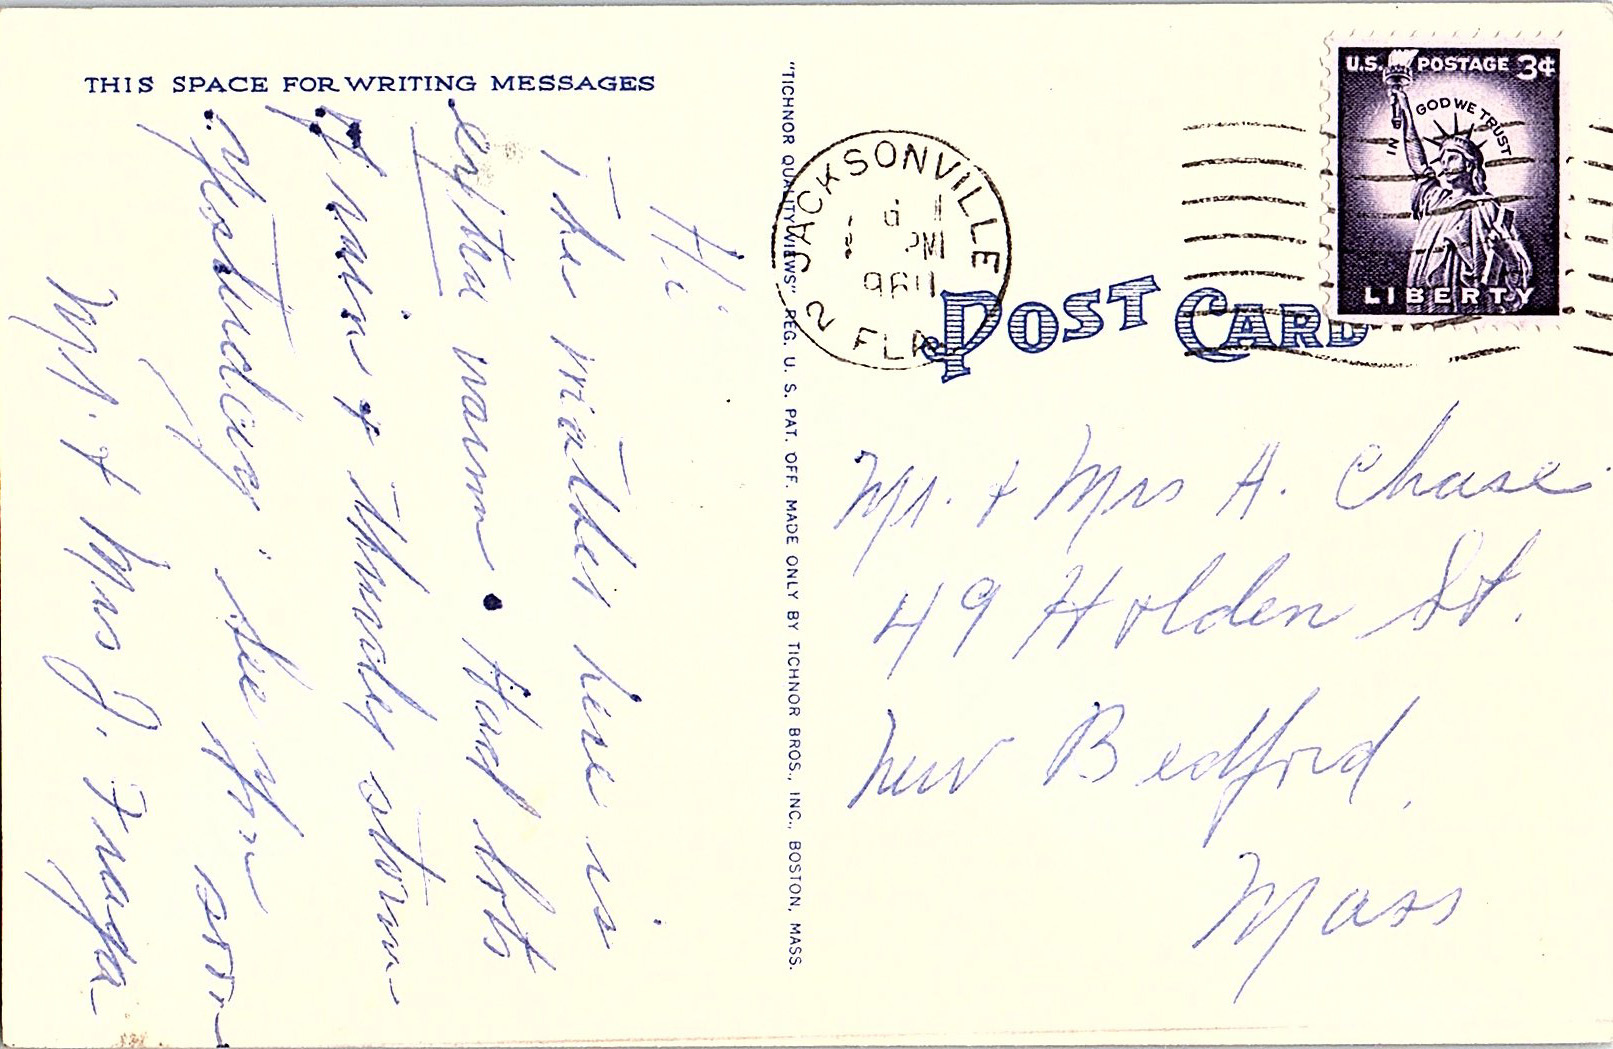 THIS SPACE FOR WRITING MESSAGES
Hi
The weather here is
extra warm. Had lots
of rain & thunder storm
yesterday. See you soon
Mr. & Mrs J. Fraga
"TICHNOR QUALITY VIEWS" REG. U. S. PAT. OFF. MADE ONLY BY TICHNOR BROS., INC., BOSTON, MASS.
JACKSONVILLE
PM
FLA
2
POST CARD
U.S. POSTAGE 3¢
IN GOD WE TRUST
LIBERTY
Mr. & Mrs A. Chase
49 Holden St.
New Bedford,
Mass